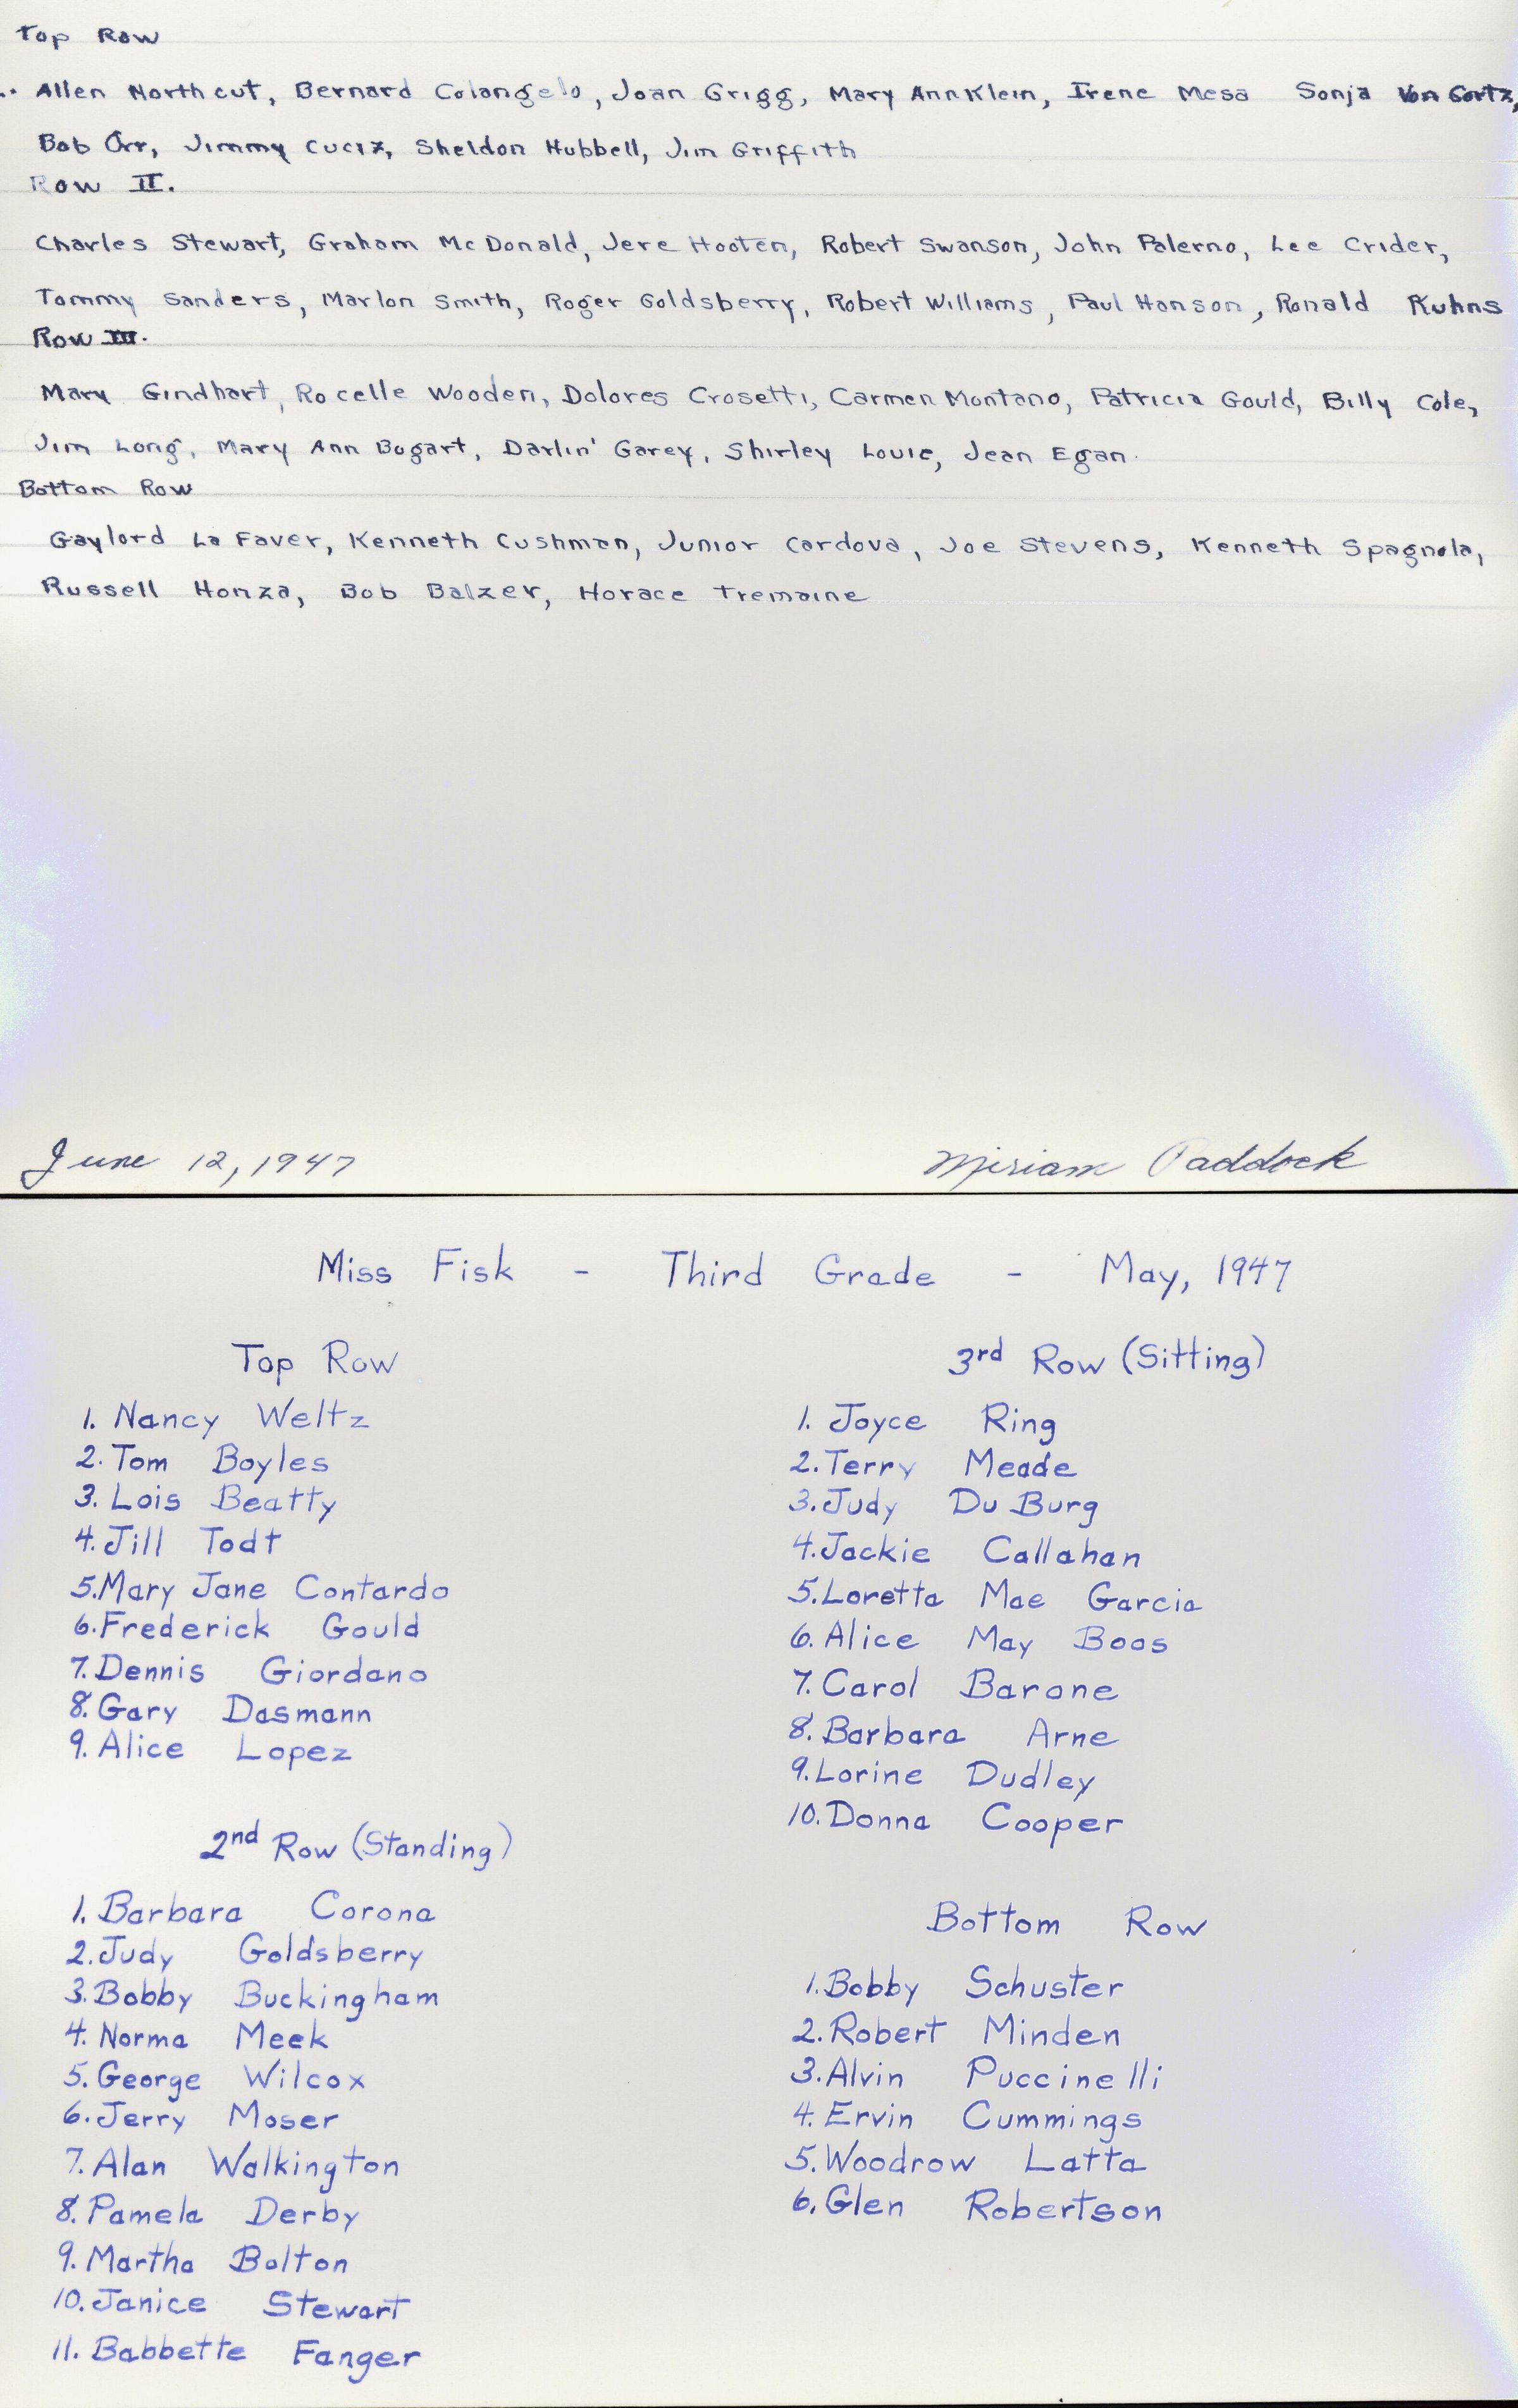 Top Row
Allen Northcut, Bernard Colangelo, Joan Grigg, Mary Ann Klein, Irene Mesa Sonja Von Gortz,
Bob Orr, Jimmy Cuciz, Sheldon Hubbell, Jim Griffith
Row II.
Charles Stewart, Graham McDonald, Jere Hooten, Robert Swanson, John Palerno, Lee Crider,
Tommy Sanders, Marlon Smith, Roger Goldsberry, Robert Williams, Paul Hanson, Ronald Kuhns
Row III.
Mary Gindhart, Rocelle Wooden, Dolores Crosetti, Carmen Montano, Patricia Gould, Billy Cole,
Jim Long, Mary Ann Bogart, Darlin' Garey, Shirley Louie, Jean Egan.
Bottom Row
Gaylord La Faver, Kenneth Cushman, Junior Cardova, Joe Stevens, Kenneth Spagnola,
Russell Honza, Bob Balzer, Horace Tremaine
June 12, 1947 Miriam Paddock
Miss Fisk - Third Grade - May, 1947
Top Row
1. Nancy Weltz
2. Tom Boyles
3. Lois Beatty
4. Jill Todt
5. Mary Jane Contardo
6. Frederick Gould
7. Dennis Giordano
8. Gary Dasmann
9. Alice Lopez
2nd Row (Standing)
1. Barbara Corona
2. Judy Goldsberry
3. Bobby Buckingham
4. Norma Meek
5. George Wilcox
6. Jerry Moser
7. Alan Walkington
8. Pamela Derby
9. Martha Bolton
10. Janice Stewart
11. Babbette Fanger
3rd Row (Sitting)
1. Joyce Ring
2. Terry Meade
3. Judy Du Burg
4. Jackie Callahan
5. Loretta Mae Garcia
6. Alice May Boos
7. Carol Barone
8. Barbara Arne
9. Lorine Dudley
10. Donna Cooper
Bottom Row
1. Bobby Schuster
2. Robert Minden
3. Alvin Puccinelli
4. Ervin Cummings
5. Woodrow Latta
6. Glen Robertson